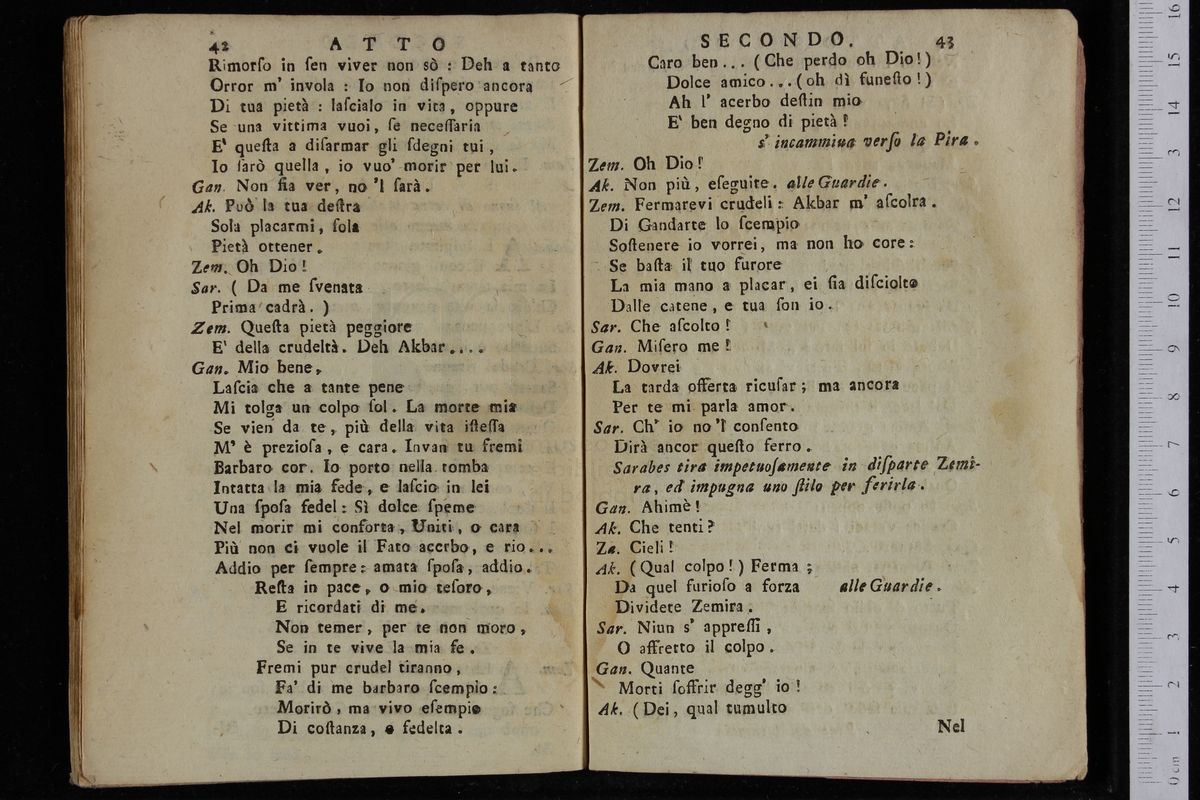 42 ATTO
Rimorſo in ſen viver non sò : Deh a tanto
Orror m' invola : Io non diſpero ancora
Di tua pietà : laſcialo in vita, oppure
Se una vittima vuoi, ſe neceſſaria
E' queſta a diſarmar gli ſdegni tui,
Io ſarò quella, io vuo' morir per lui.
Gan. Non fia ver, no 'l ſarà.
Ak. Può la tua deſtra
Sola placarmi, ſola
Pietà ottener.
Zem. Oh Dio!
Sar. ( Da me ſvenata
Prima cadrà. )
Zem. Queſta pietà peggiore
E' della crudeltà. Deh Akbar....
Gan. Mio bene,
Laſcia che a tante pene
Mi tolga un colpo ſol. La morte mia
Se vien da te, più della vita iſteſſa
M' è prezioſa, e cara. Invan tu fremi
Barbaro cor. Io porto nella tomba
Intatta la mia fede, e laſcio in lei
Una ſpoſa fedel: Sì dolce ſpeme
Nel morir mi conforta, Uniti, o cara
Più non ci vuole il Fato acerbo, e rio...
Addio per ſempre: amata ſpoſa, addio.
Reſta in pace, o mio teſoro,
E ricordati di me.
Non temer, per te non moro,
Se in te vive la mia fe.
Fremi pur crudel tiranno,
Fa' di me barbaro ſcempio:
Morirò, ma vivo eſempio
Di coſtanza, e fedelta.
SECONDO. 43
Caro ben... (Che perdo oh Dio!)
Dolce amico...(oh dì funeſto!)
Ah l' acerbo deſtin mio
E' ben degno di pietà!
s' incammina verſo la Pira.
Zem. Oh Dio!
Ak. Non più, eſeguite. alle Guardie.
Zem. Fermarevi crudeli: Akbar m' aſcolra.
Di Gandarte lo ſcempio
Soſtenere io vorrei, ma non ho core:
Se baſta il tuo furore
La mia mano a placar, ei ſia diſciolto
Dalle catene, e tua ſon io.
Sar. Che aſcolto!
Gan. Miſero me!
Ak. Dovrei
La tarda offerta ricuſar; ma ancora
Per te mi parla amor.
Sar. Ch' io no 'l conſento
Dirà ancor queſto ferro.
Sarabes tira impetuoſamente in diſparte Zemi-
ra, ed impugna uno ſtilo per ferirla.
Gan. Ahimè!
Ak. Che tenti?
Za. Cieli!
Ak. (Qual colpo!) Ferma;
Da quel furioſo a forza alle Guardie.
Dividete Zemira.
Sar. Niun s' appreſſi,
O affretto il colpo.
Gan. Quante
Morti ſoffrir degg' io!
Ak. (Dei, qual tumulto
Nel